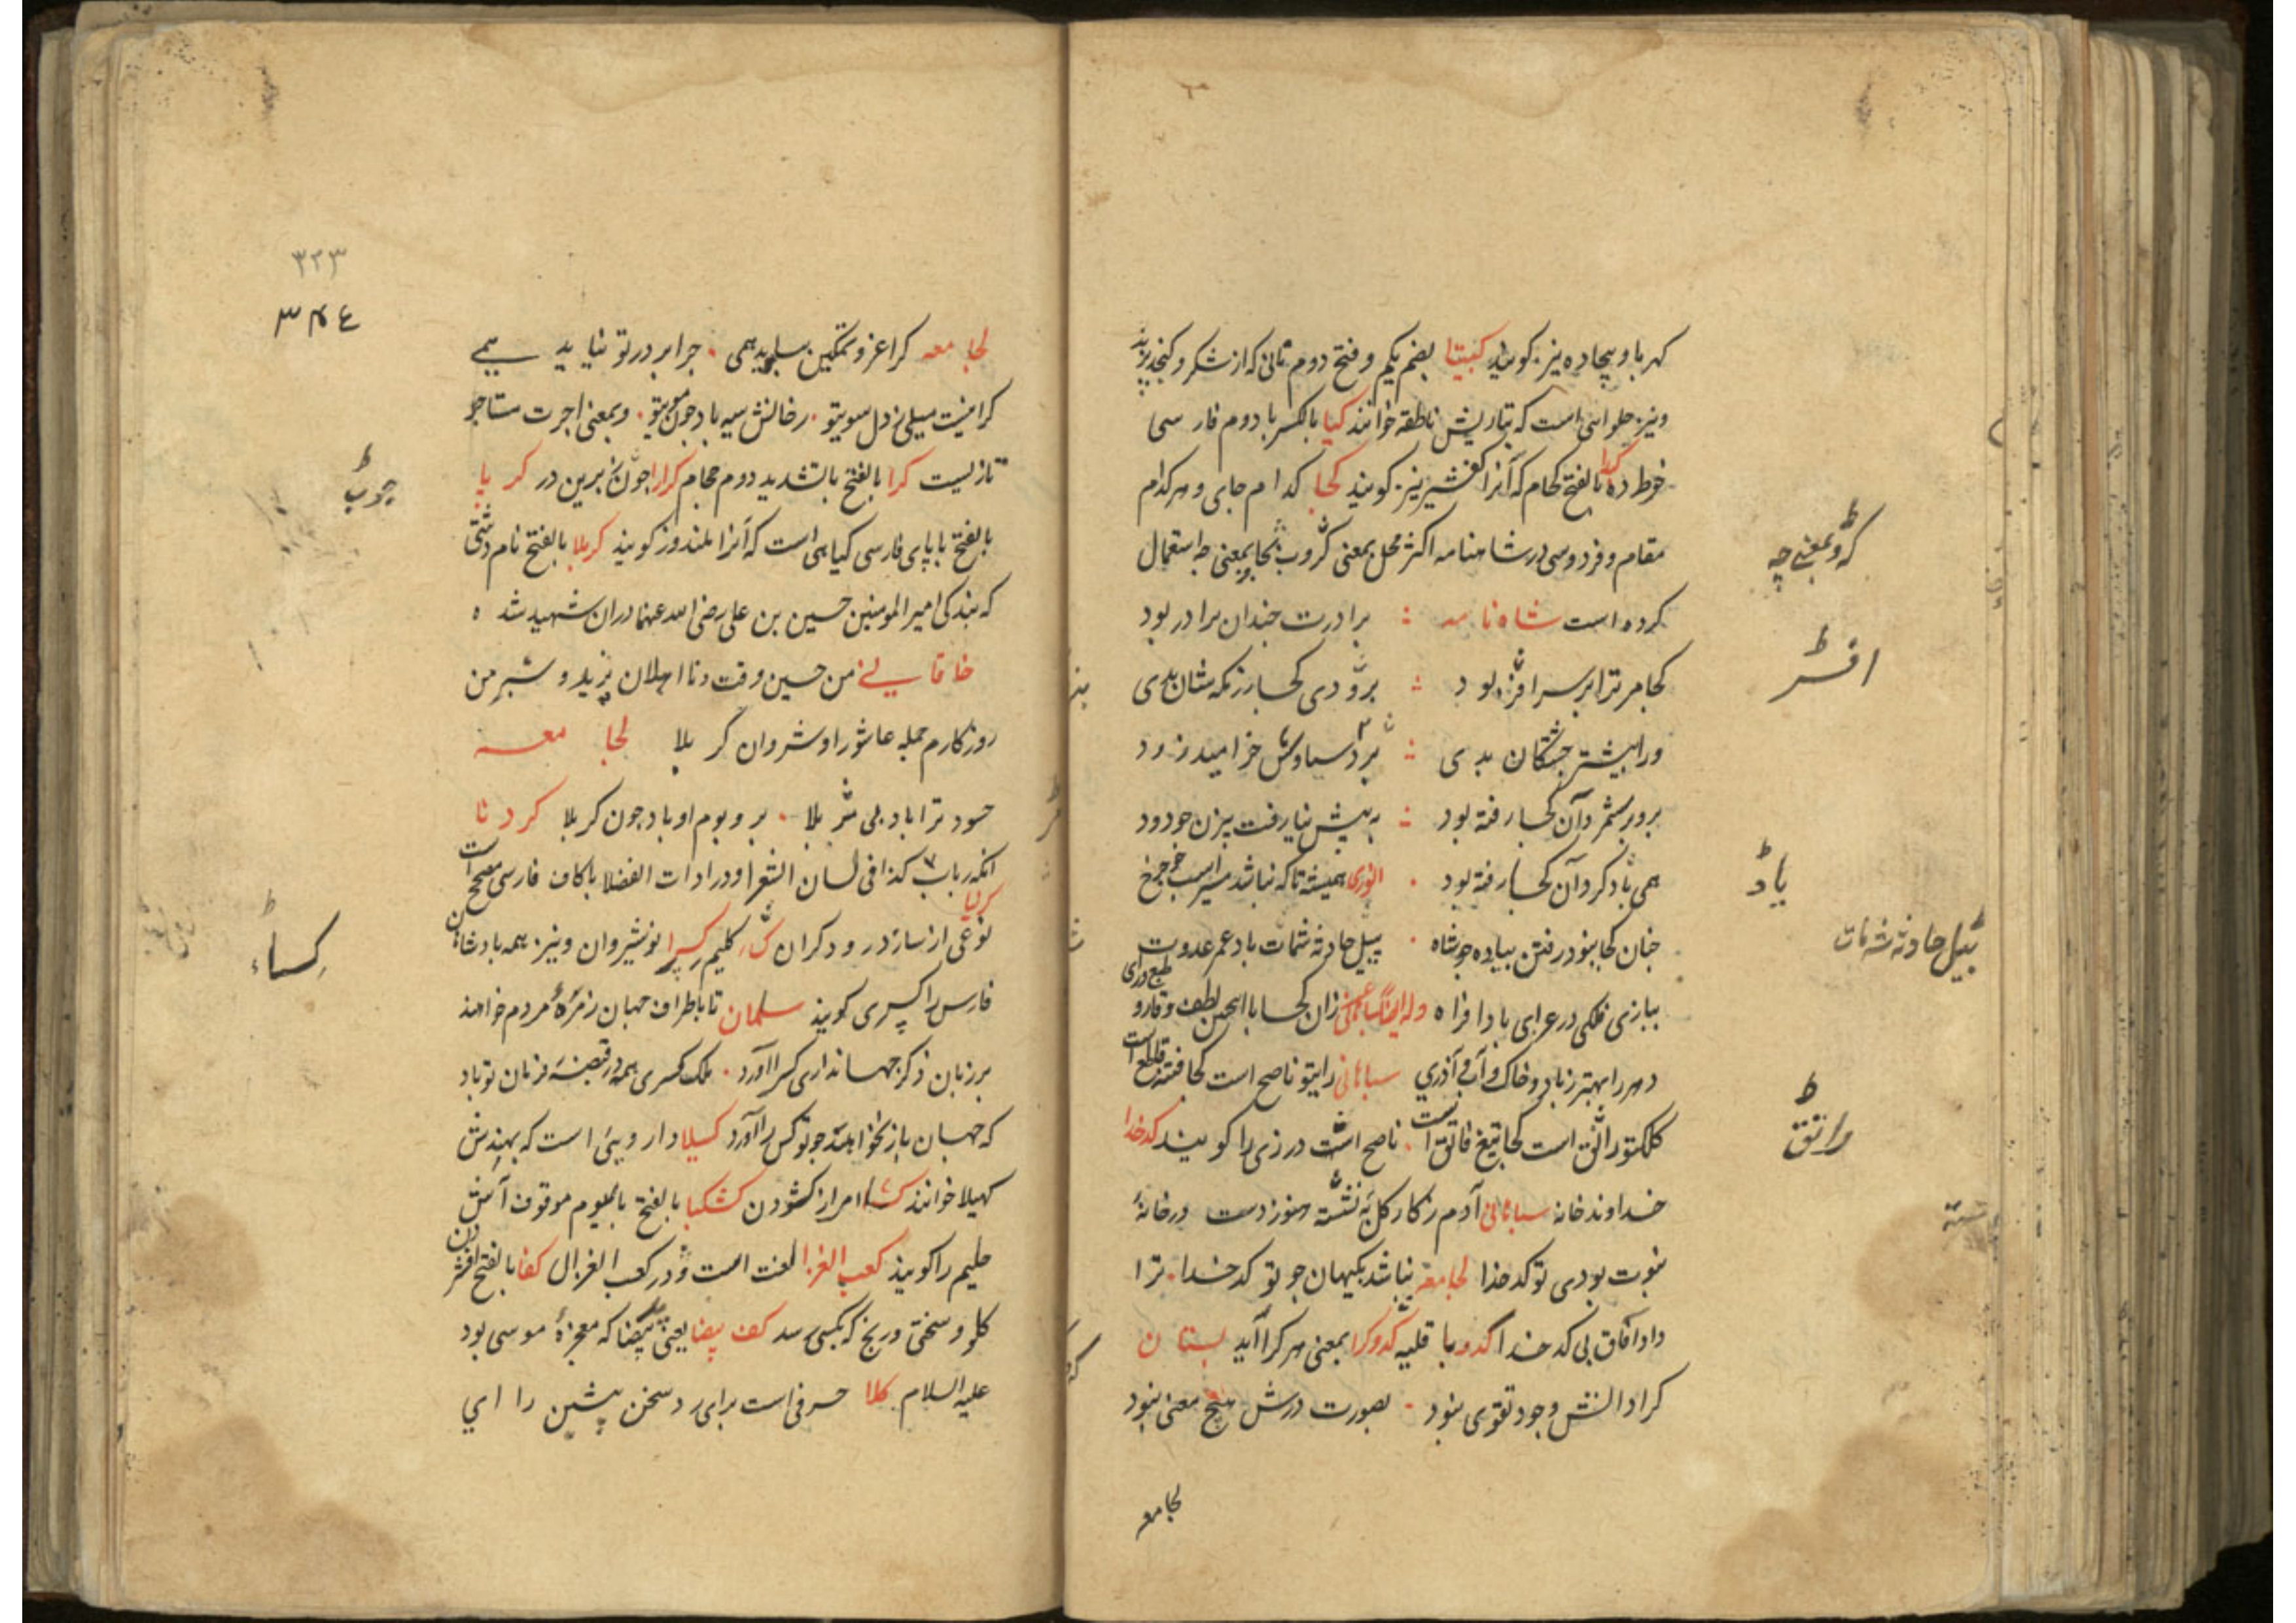 کهربا و بیجاده نیز کویند کبیتا بضم یکم و فتح دوم نانی که از شکر و کنجد پزند
ونیز حلوائی است که بتازیش ناطقه خوانند کیا بالکسر با دوم فارسی
کدا بالفتح کحام که آنرا نیز کویند کجا کدام جای و هر کدام
مقام و فردوسی در شاهنامه اکثر محل بمعنی که و بمعنی چه استعمال
کرده است شاه نامه برادرت چندان برادر بود
کجا مر ترا بر سر افسر بود بدی
ورا بیشتر بدی سیاوش خرامید زود
بر شمرد آن کجا رفته بود به پیش نیا رفت بیژن چو دود
همی یاد کرد آن کجا رفته بود انوری همیشه تا که نباشد
چنان کجا بنود رفتن پیاده چو شاه پیل حادثه شهمات باد عمر عدوت
ببازی فلکی در عرای باد افراه وله ایضا زان کجا با لطف و
در هر را بهتر ز باد و خاک و آب و آذری سباهانی رایتو ناصح است کجا فتنه قاطع است
کلکتو راتق است کجا تیغ فاتق است ناصح است درزی را کویند کدخدا
خداوند خانه سباهانی آدم ز کار کل به نشسته هنوز دست در خانهٔ
نبوت بودی تو کدخدا لجامعه نباشد بکیهان چو تو کدخدا ترا
داد آفاق بی کدخدا کدوبا قلیه کدو کرا بمعنی هر کرا آید بستان
کرا دانش و جود تقوی نبود بصورت درش هیچ معنی نبود
لجامعه
که و بمعنی چه
افسر
یاد
پیل حادثه شهمات
راتق
۳۲۳
لجامعه کرا عز و تمکین همی چرا بر در تو نیاید همی
کرا نیست میلی ز دل سوی تو رخانش سیه باد چون موی تو و بمعنی اجرت مستاجر
تازیست کرا بالفتح بالتشدید دوم حجام کرارا چون برین در کر پا
بالفتح با پای فارسی کیاهی است که آنرا بلندوز کویند کربلا بالفتح نام دشتی
که بندکی امیر المومنین حسین بن علی رضی الله عنهما دران شهید شده
خاقانی من حسین وقت و نااهلان یزید و شمر من
روزکارم جمله عاشورا و شروان کربلا لجا معه
حسود ترا باد بی شر بلا بر و بوم او باد چون کربلا کردنا
انکه رباب کذا فی لسان الشعرا و در ادات الفضلا باکاف فارسی مصحح است
نوعی از ساز در ودکران کسا کلیم کسرا نوشیروان ونیز همه بادشاهان
فارس را کسری کویند سلمان تا باطراف جهان زمرهٔ مردم خواهند
بر زبان ذکر جهانداری کسرا آورد ملک کسری همه در قبضهٔ فرمان تو باد
که جهان باز نخواهد چو تو کس را آورد کسیلا دارویی است که بهندش
کهیلا خوانند کشا امر از کشودن کشکبا بالفتح با سیوم موقوف آش
حلیم را کویند کعب الغزا لغت است در کعب الغزال کفا بالفتح افشردن
کلو و سختی و رنج که بکسی رسد کف بیضا یعنی ید بیضا که معجزهٔ موسی بود
علیه السلام کلا حرفی است برای رد سخن پیشین را ای
چوب
کساء